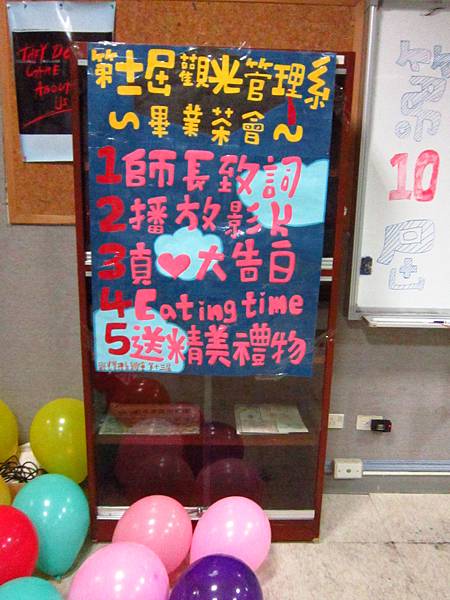 THEY DO
CARE
ABOUT
US
第十屆觀光管理系
~畢業茶會~
1師長致詞
2播放影片
3真♥大告白
4Eating time
5送精美禮物
第
10
屆